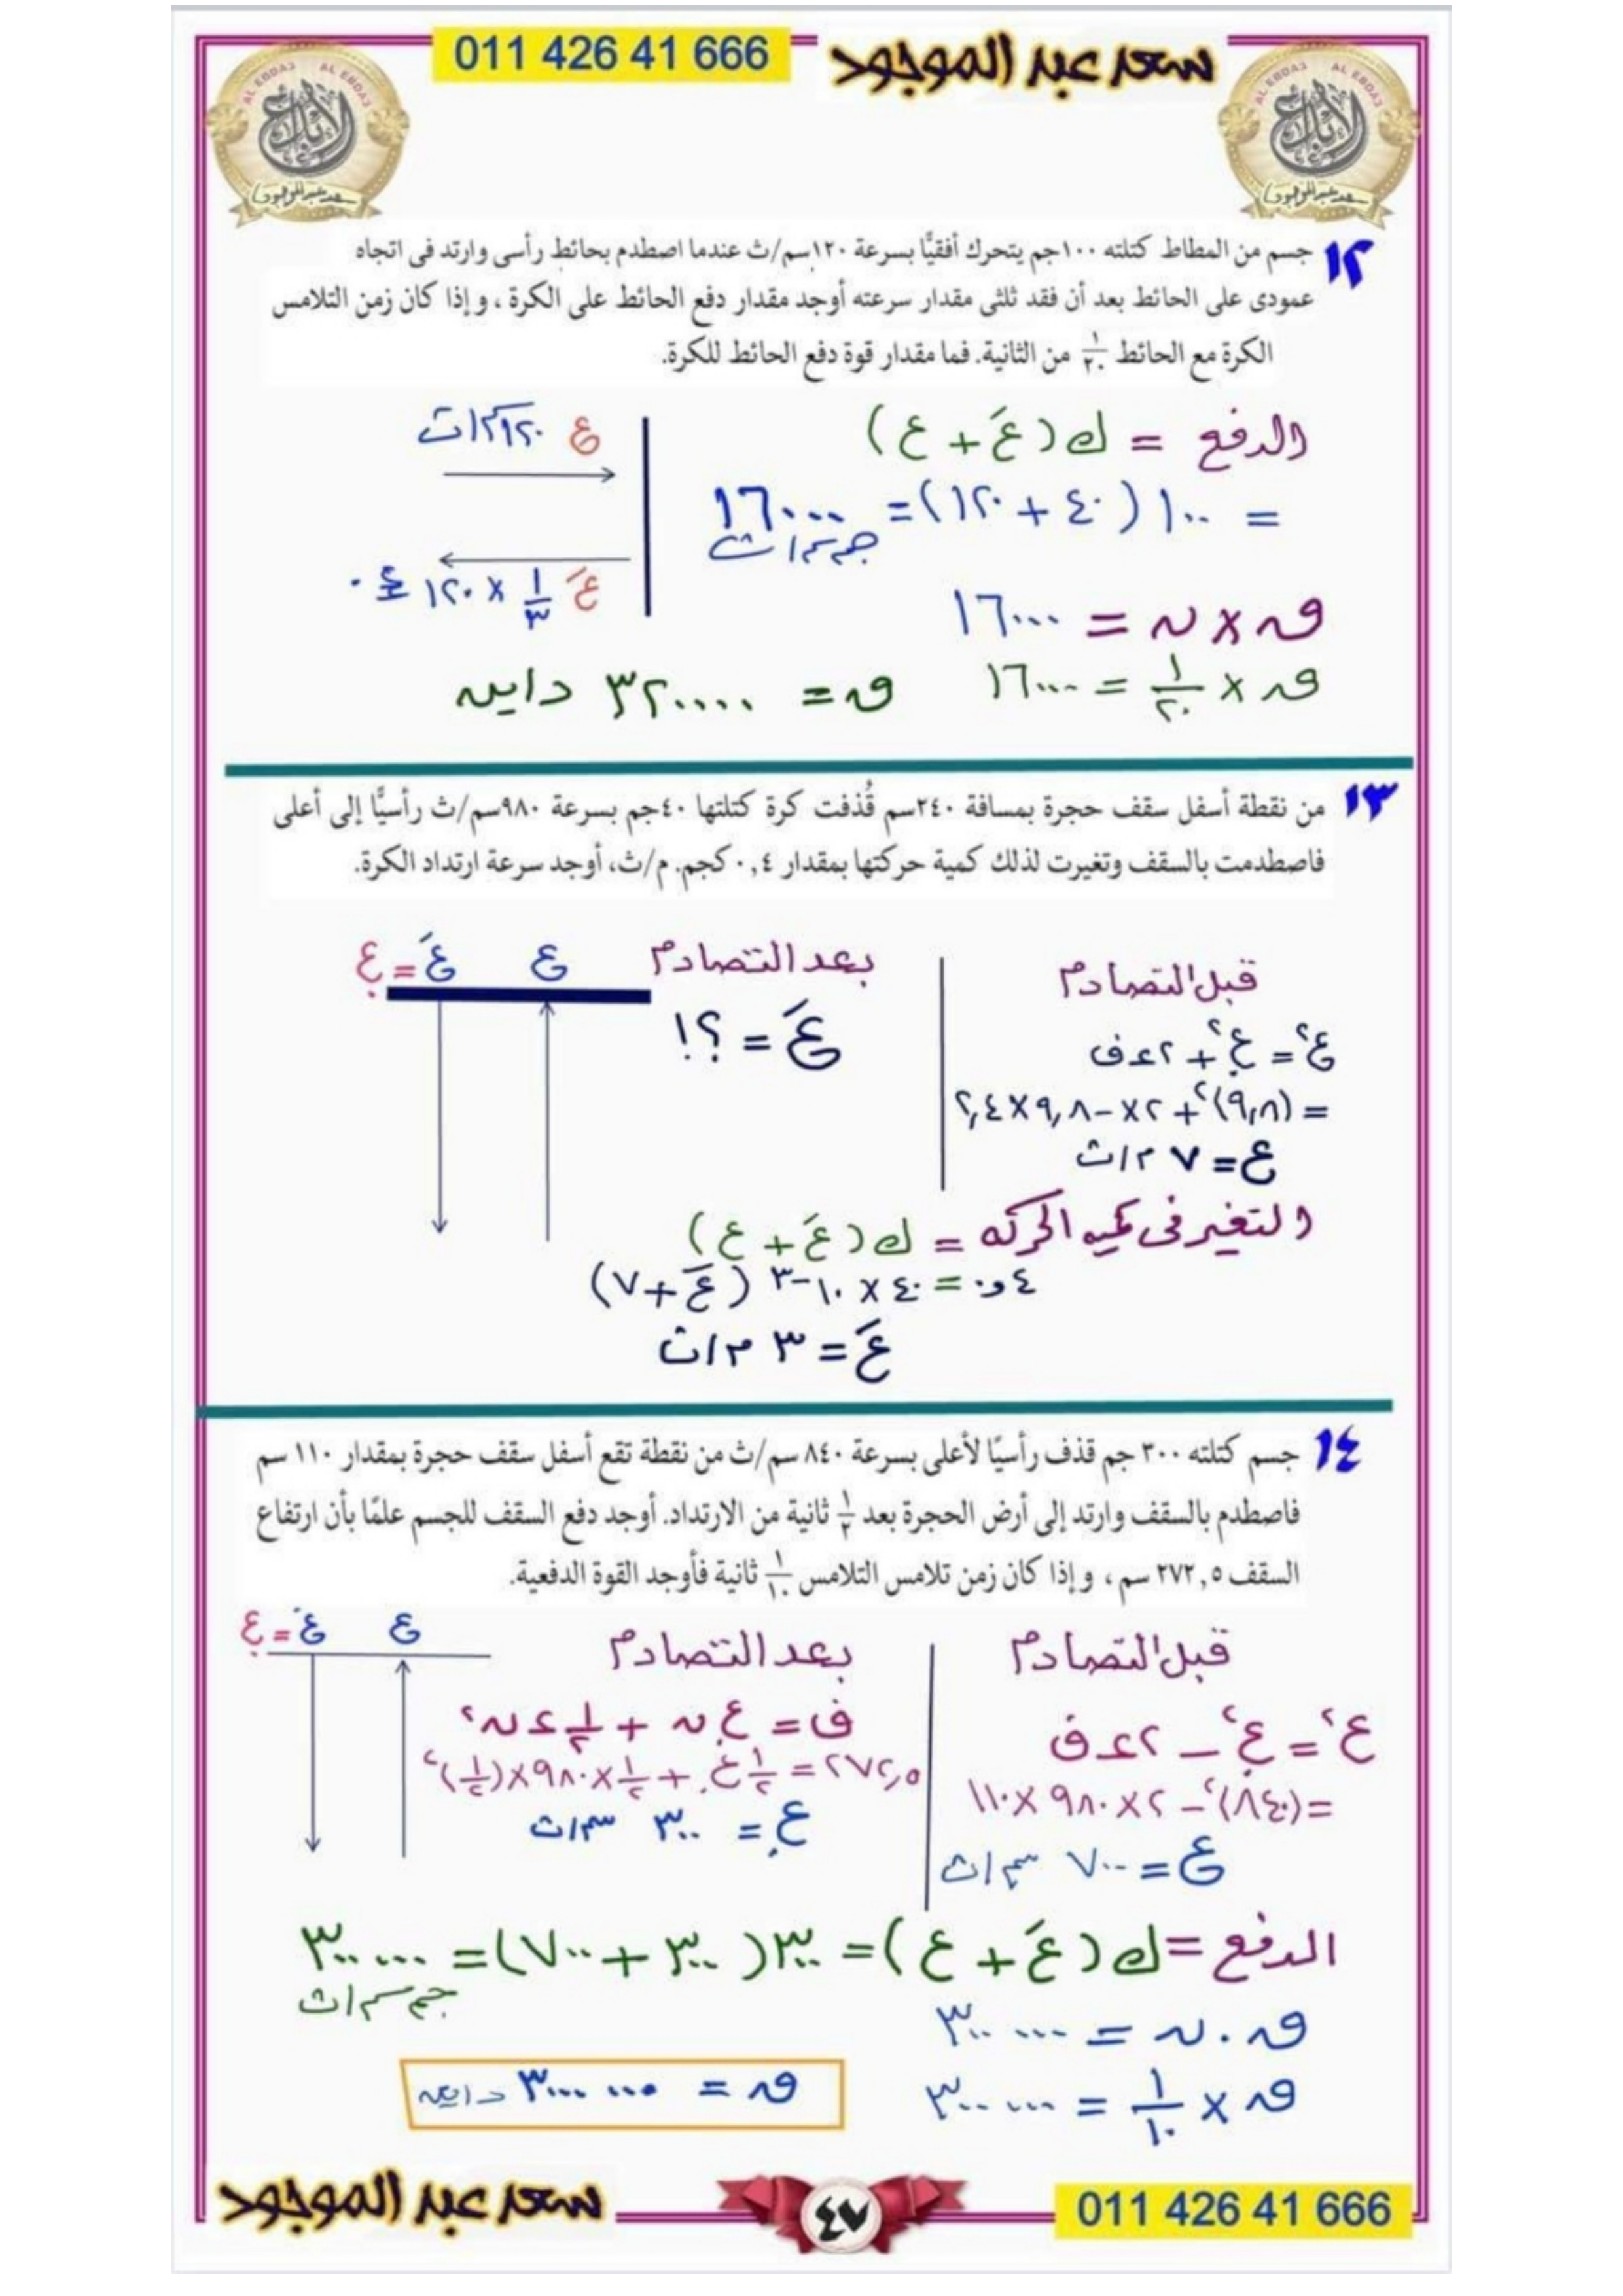 011 426 41 666
سعد عبد الموجود
AL EBDA3 AL EBDA3
الإبداع
سعد عبد الموجود
AL EBDA3 AL EBDA3
الإبداع
سعد عبد الموجود
١٢ جسم من المطاط كتلته ١٠٠جم يتحرك أفقيًّا بسرعة ١٢٠سم/ث عندما اصطدم بحائط رأسى وارتد فى اتجاه
عمودى على الحائط بعد أن فقد ثلثى مقدار سرعته أوجد مقدار دفع الحائط على الكرة ، و إذا كان زمن التلامس
الكرة مع الحائط ١/٢٠ من الثانية. فما مقدار قوة دفع الحائط للكرة.
الدفع = ك (عَ + ع)
= ١٠٠ (٤٠ + ١٢٠) = ١٦٠٠٠ جم سم/ث
ع ١٢٠ سم/ث
عَ ١/٣ × ١٢٠ = ٤٠
ق × ن = ١٦٠٠٠
ق × ١/٢٠ = ١٦٠٠٠
ق = ٣٢٠٠٠٠ داين
١٣ من نقطة أسفل سقف حجرة بمسافة ٢٤٠سم قُذفت كرة كتلتها ٤٠جم بسرعة ٩٨٠سم/ث رأسيًّا إلى أعلى
فاصطدمت بالسقف وتغيرت لذلك كمية حركتها بمقدار ٠,٤ كجم. م/ث، أوجد سرعة ارتداد الكرة.
قبل التصادم
ع² = ع.² + ٢ء ف
= (٩,٨)² + ٢× -٩,٨ × ٢,٤
ع = ٧ م/ث
بعد التصادم
عَ = ؟!
ع
عَ = ع.
التغير فى كميه الحركه = ك (عَ + ع)
٠,٤ = ٤٠ × ١٠-٣ (عَ + ٧)
عَ = ٣ م/ث
١٤ جسم كتلته ٣٠٠ جم قذف رأسيًا لأعلى بسرعة ٨٤٠ سم/ث من نقطة تقع أسفل سقف حجرة بمقدار ١١٠ سم
فاصطدم بالسقف وارتد إلى أرض الحجرة بعد ١/٢ ثانية من الارتداد. أوجد دفع السقف للجسم علمًا بأن ارتفاع
السقف ٢٧٢,٥ سم ، و إذا كان زمن تلامس التلامس ١/١٠ ثانية فأوجد القوة الدفعية.
قبل التصادم
ع² = ع.² – ٢ء ف
= (٨٤٠)² – ٢ × ٩٨٠ × ١١٠
ع = ٧٠٠ سم/ث
بعد التصادم
ف = ع. ن + ١/٢ ء ن²
٢٧٢,٥ = ١/٢ ع. + ١/٢ × ٩٨٠ × (١/٢)²
ع. = ٣٠٠ سم/ث
ع
عَ = ع.
الدفع = ك (عَ + ع) = ٣٠٠ (٣٠٠ + ٧٠٠) = ٣٠٠٠٠٠ جم سم/ث
ق . ن = ٣٠٠٠٠٠
ق × ١/١٠ = ٣٠٠٠٠٠
ق = ٣٠٠٠٠٠٠ داين
سعد عبد الموجود
٤٧
011 426 41 666